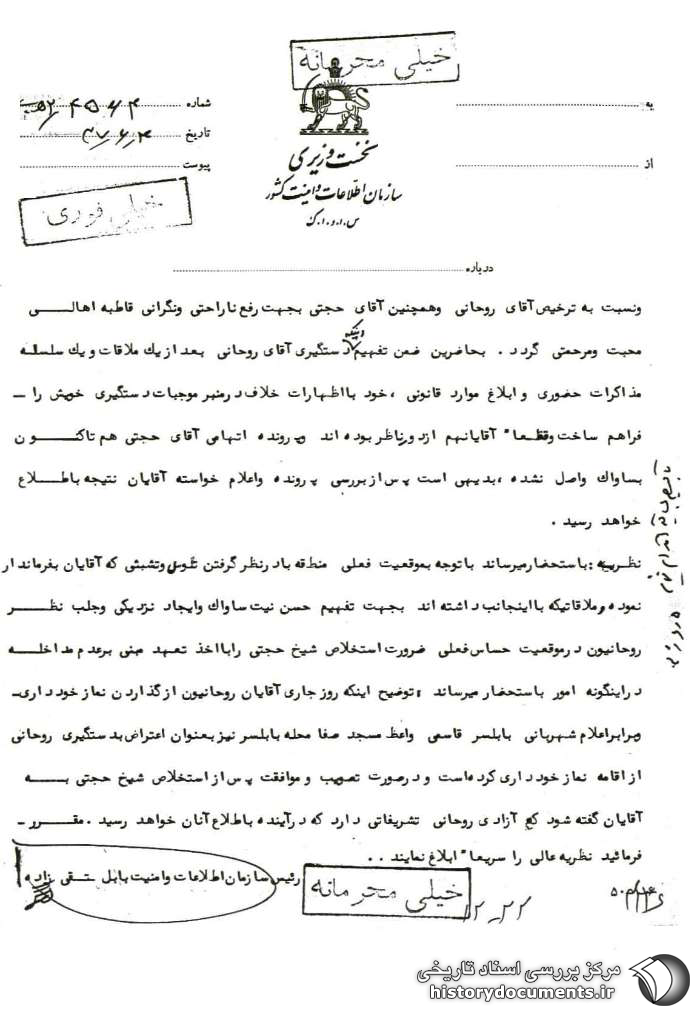 خیلی محرمانه
به
شماره ۴۵۶۴
تاریخ ۴۷٫۶٫۴
از
پیوست
نخست وزیری
سازمان اطلاعات و امنیت کشور
س.ا.و.ا.ک
خیلی فوری
درباره
ونسبت به ترخیص آقای روحانی وهمچنین آقای حجتی بجهت رفع ناراحتی ونگرانی قاطبه اهالی
محبت ومرحمتی گردد . بحاضرین ضمن تفهیم اینکه دستگیری آقای روحانی بعد ازیك ملاقات ویك سلسله
مذاکرات حضوری و ابلاغ موارد قانونی ، خود بااظهارات خلاف درمنبر موجبات دستگیری خویش را -
فراهم ساخت وقطعا" آقایانهم ازدورناظر بوده اند وپرونده اتهامی آقای حجتی هم تاکنون
بساواك واصل نشده ، بدیهی است پس ازبررسی پرونده واعلام خواسته آقایان نتیجه باطلاع
خواهد رسید .
نظریه : باستحضار میرساند باتوجه بموقعیت فعلی منطقه بادرنظر گرفتن تلوس وتشبثی که آقایان بفرماندار
نموده و ملاقاتیکه بااینجانب داشته اند بجهت تفهیم حسن نیت ساواك وایجاد نزدیکی وجلب نظر
روحانیون درموقعیت حساس فعلی ضرورت استخلاص شیخ حجتی رابااخذ تعهد مبنی برعدم مداخله
دراینگونه امور باستحضار میرساند ، توضیح اینکه روز جاری آقایان روحانیون ازگذاردن نماز خودداری-
وبرابراعلام شهربانی بابلسر قاسمی واعظ مسجد صفا محله بابلسر نیز بعنوان اعتراض بدستگیری روحانی
از اقامه نماز خودداری کرده است و درصورت تصویب و موافقت پس از استخلاص شیخ حجتی به
آقایان گفته شود که آزادی روحانی تشریفاتی دارد که درآینده باطلاع آنان خواهد رسید . مقرر -
فرمائید نظریه عالی را سریعا" ابلاغ نمایند . .
رئیس سازمان اطلاعات وامنیت بابل تقی زاده
خیلی محرمانه
مرکز بررسی اسناد تاریخی
historydocuments.ir